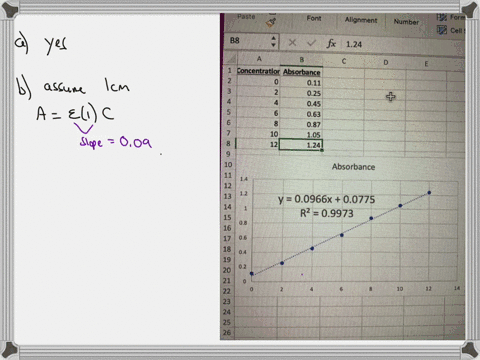 a) yes
b) assume 1cm
A = ε(1) C
slope = 0.09
Paste
Font
Alignment
Number
Cell
B8
fx 1.24
A B C D E
1 Concentration Absorbance
2 0 0.11
3 2 0.25
4 4 0.45
5 6 0.63
6 8 0.87
7 10 1.05
8 12 1.24
9
10
11
12
13
14
15
16
17
18
19
20
21
22
23
24
25
26
Absorbance
y = 0.0966x + 0.0775
R² = 0.9973
1.4
1.2
1
0.8
0.6
0.4
0.2
0
0 2 4 6 8 10 12 14